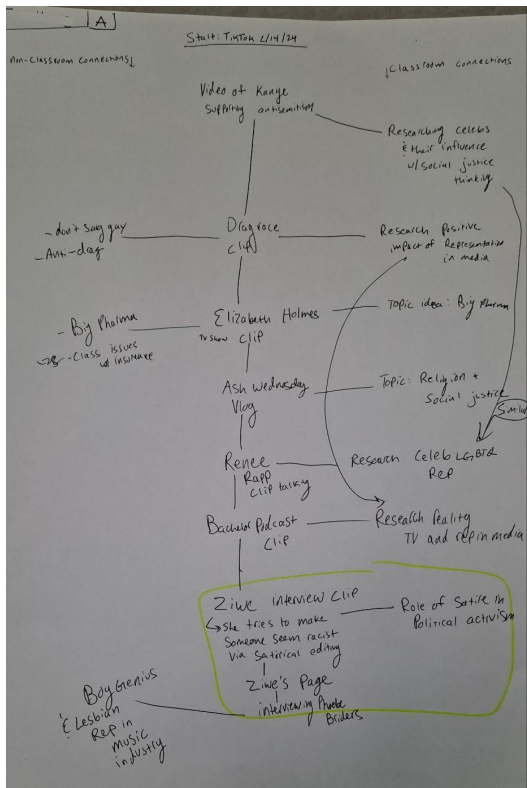 A
Start: TikTok 2/14/24
non-Classroom connections↓
↓Classroom connections
Video of Kanye
Supporting antisemitism
Researching celebs
& their influence
w/social justice
thinking
- don't say gay
- Anti-drag
Dragrace
clip
Research Positive
impact of Representation
in media
Elizabeth Holmes
TV show clip
- Big Pharma
- Class issues
w/ insurance
Topic idea: Big Pharma
Ash Wednesday
Vlog
Topic: Religion +
Social justice
Similar
Renee
Rapp
Clip talking
Research Celeb LGBTQ
Rep
Bachelor Podcast
Clip
Research Reality
TV and rep in media
Ziwe interview clip
↳ She tries to make
Someone seem racist
via satirical editing
Role of Satire in
Political activism
Ziwe's Page
interviewing Phoebe
Briders
Boy Genius
& Lesbian
Rep in
music
industry